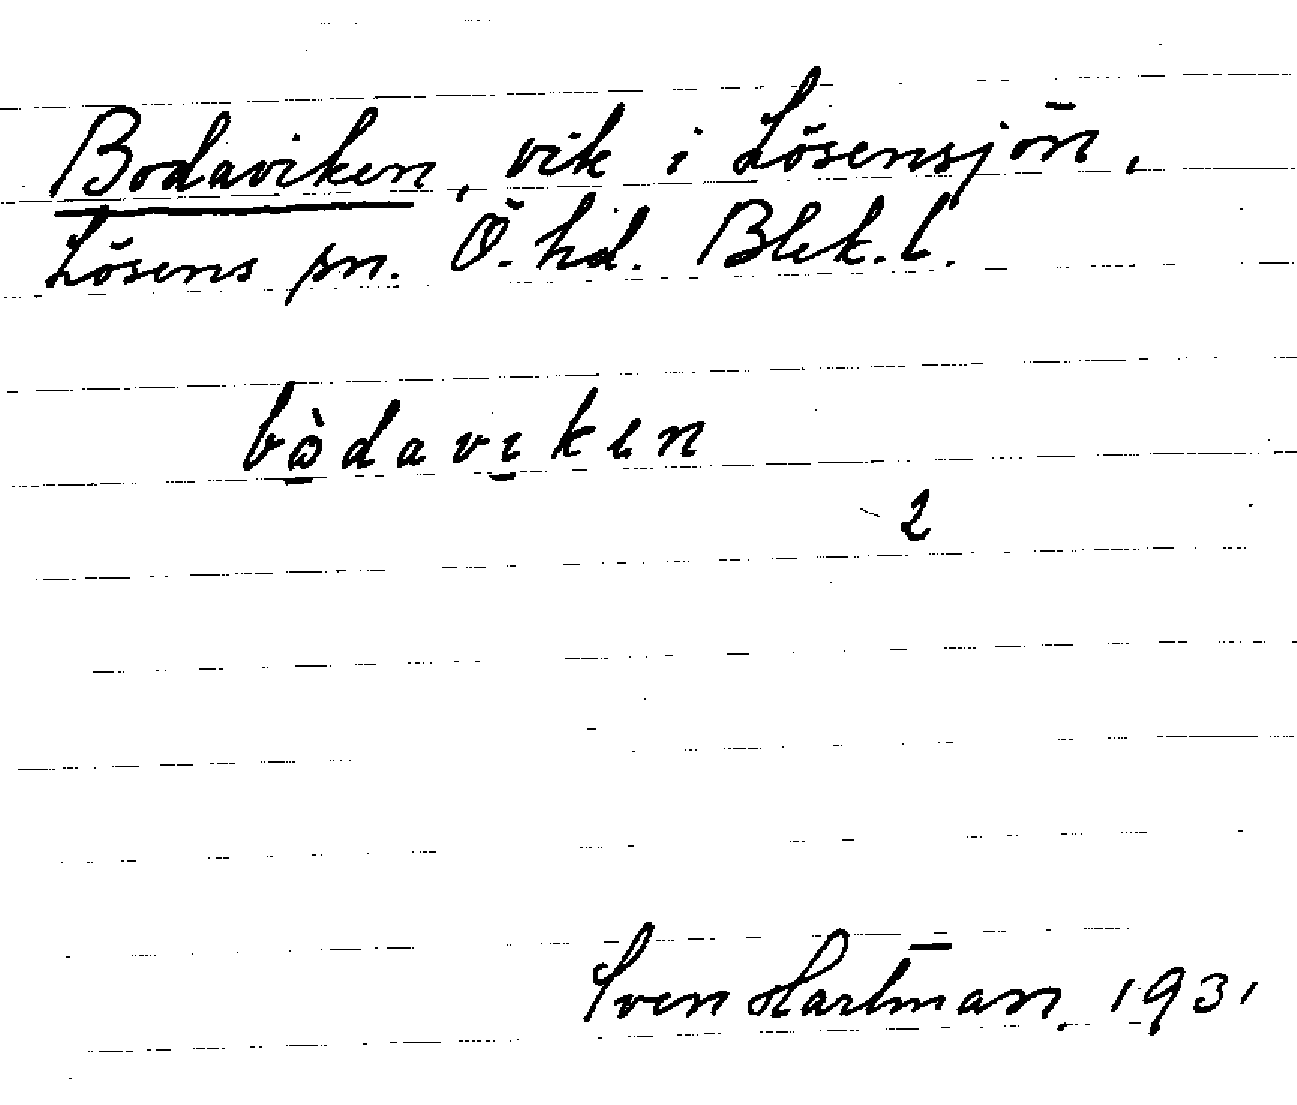 Bodaviken, vik i Lösensjön,
Lösens sn. Ö. hd. Blek. l.
bòdavıkɩn
2
Sven Hartman. 1931